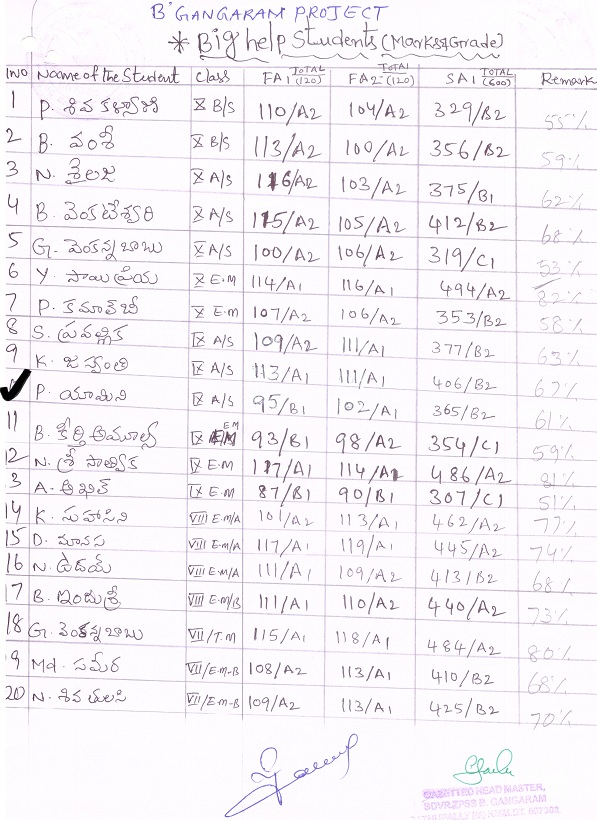 B' GANGARAM PROJECT
* Big help Students (Marks & Grade)
SNO Name of the Student Class FA1 TOTAL (120) FA2 TOTAL (120) SA1 TOTAL (600) Remark
1 P. శివ కళ్యాణి X B/S 110/A2 104/A2 329/B2 55%
2 B. వంశీ X B/S 113/A2 100/A2 356/B2 59%
3 N. శైలజ X A/S 116/A2 103/A2 375/B1 62%
4 B. వెంకటేశ్వరి X A/S 115/A2 105/A2 412/B2 68%
5 G. వెంకన్న బాబు X A/S 100/A2 106/A2 319/C1 53%
6 Y. సాయి ప్రియ X E.M 114/A1 116/A1 494/A2 82%
7 P. కమాల్ బీ X E.M 107/A2 106/A2 353/B2 58%
8 S. ప్రవల్లిక IX A/S 109/A2 111/A1 377/B2 63%
9 K. జస్వంతి IX A/S 113/A1 111/A1 406/B2 67%
P. యామిని IX A/S 95/B1 102/A1 365/B2 61%
11 B. కీర్తి అమూల్య IX E.M 93/B1 98/A2 354/C1 59%
12 N. శ్రీ సాత్విక IX E.M 117/A1 114/A1 486/A2 81%
3 A. అఖిల్ IX E.M 87/B1 90/B1 307/C1 51%
14 K. సుహాసిని VIII E.M/A 101/A2 113/A1 462/A2 77%
15 D. మానస VIII E.M/A 117/A1 119/A1 445/A2 74%
16 N. ఉదయ్ VIII E.M/A 111/A1 109/A2 413/B2 68%
17 B. ఇందుశ్రీ VIII E.M/B 111/A1 110/A2 440/A2 73%
18 G. వెంకన్నబాబు VII/T.M 115/A1 118/A1 484/A2 80%
9 Md. సమీర VII/E.M-B 108/A2 113/A1 410/B2 68%
20 N. శివ తులసి VII/E.M-B 109/A2 113/A1 425/B2 70%
GAZETTED HEAD MASTER,
B. GANGARAM